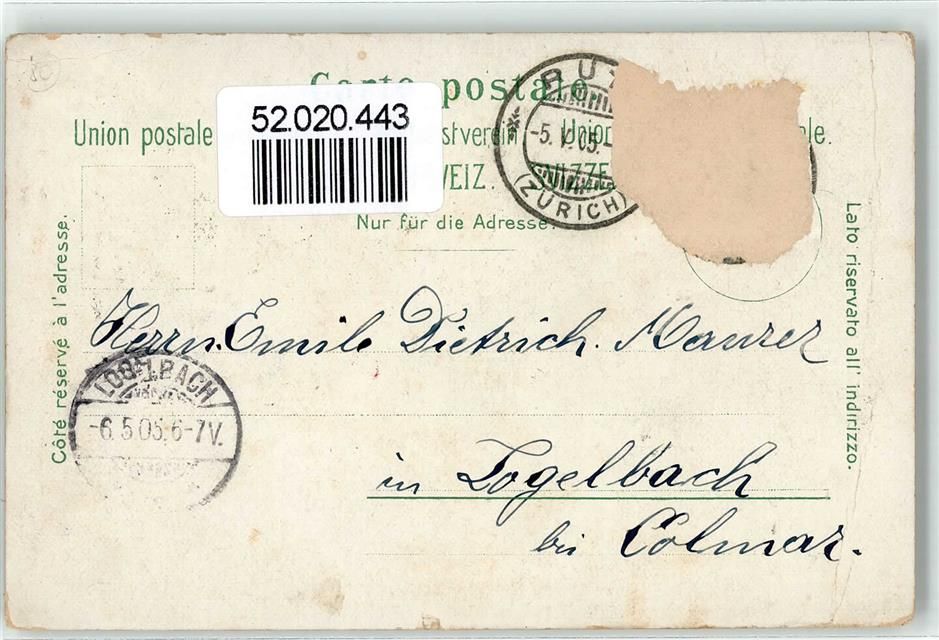 Carte postale
52.020.443
Union postale stverein. Unio le.
WEIZ. SVIZZE
Nur für die Adresse.
-5. V. 05.
(ZÜRICH)
Côté réservé à l'adresse.
Lato riservato all' indirizzo.
Herrn. Emile Dietrich. Maurer
LOGELBACH
-6.5.05.6-7V.
in Logelbach
bei Colmar.